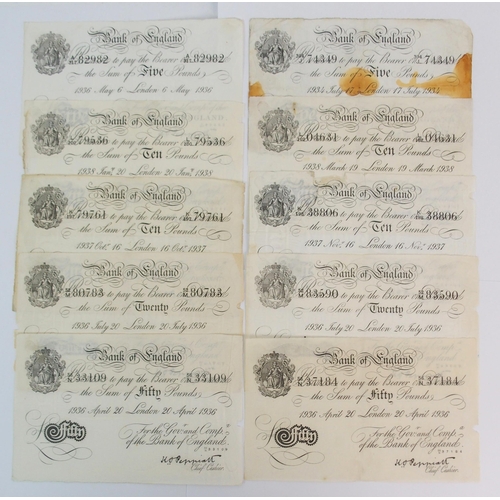 Bank of England
82982 to pay the Bearer 82982
the Sum of Five Pounds
1936 May 6 London 6 May 1936
79536 to pay the Bearer 79536
the Sum of Ten Pounds
1938 Jany. 20 London 20 Jany. 1938
79761 to pay the Bearer 79761
the Sum of Ten Pounds
1937 Octr. 16 London 16 Octr. 1937
Bank of England
80783 to pay the Bearer 80783
the Sum of Twenty Pounds
1936 July 20 London 20 July 1936
Bank of England
33109 to pay the Bearer 33109
the Sum of Fifty Pounds
1936 April 20 London 20 April 1936
For the Govr. and Compa.
£Fifty of the Bank of England
K O Peppiatt
Chief Cashier
Bank of England
74349 to pay the Bearer 74349
the Sum of Five Pounds
1934 July 17 London 17 July 1934
Bank of England
04631 to pay the Bearer 04631
the Sum of Ten Pounds
1938 March 19 London 19 March 1938
Bank of England
38806 to pay the Bearer 38806
the Sum of Ten Pounds
1937 Novr. 16 London 16 Novr. 1937
Bank of England
83590 to pay the Bearer 83590
the Sum of Twenty Pounds
1936 July 20 London 20 July 1936
Bank of England
37184 to pay the Bearer 37184
the Sum of Fifty Pounds
1936 April 20 London 20 April 1936
For the Govr. and Compa.
£Fifty of the Bank of England
K O Peppiatt
Chief Cashier